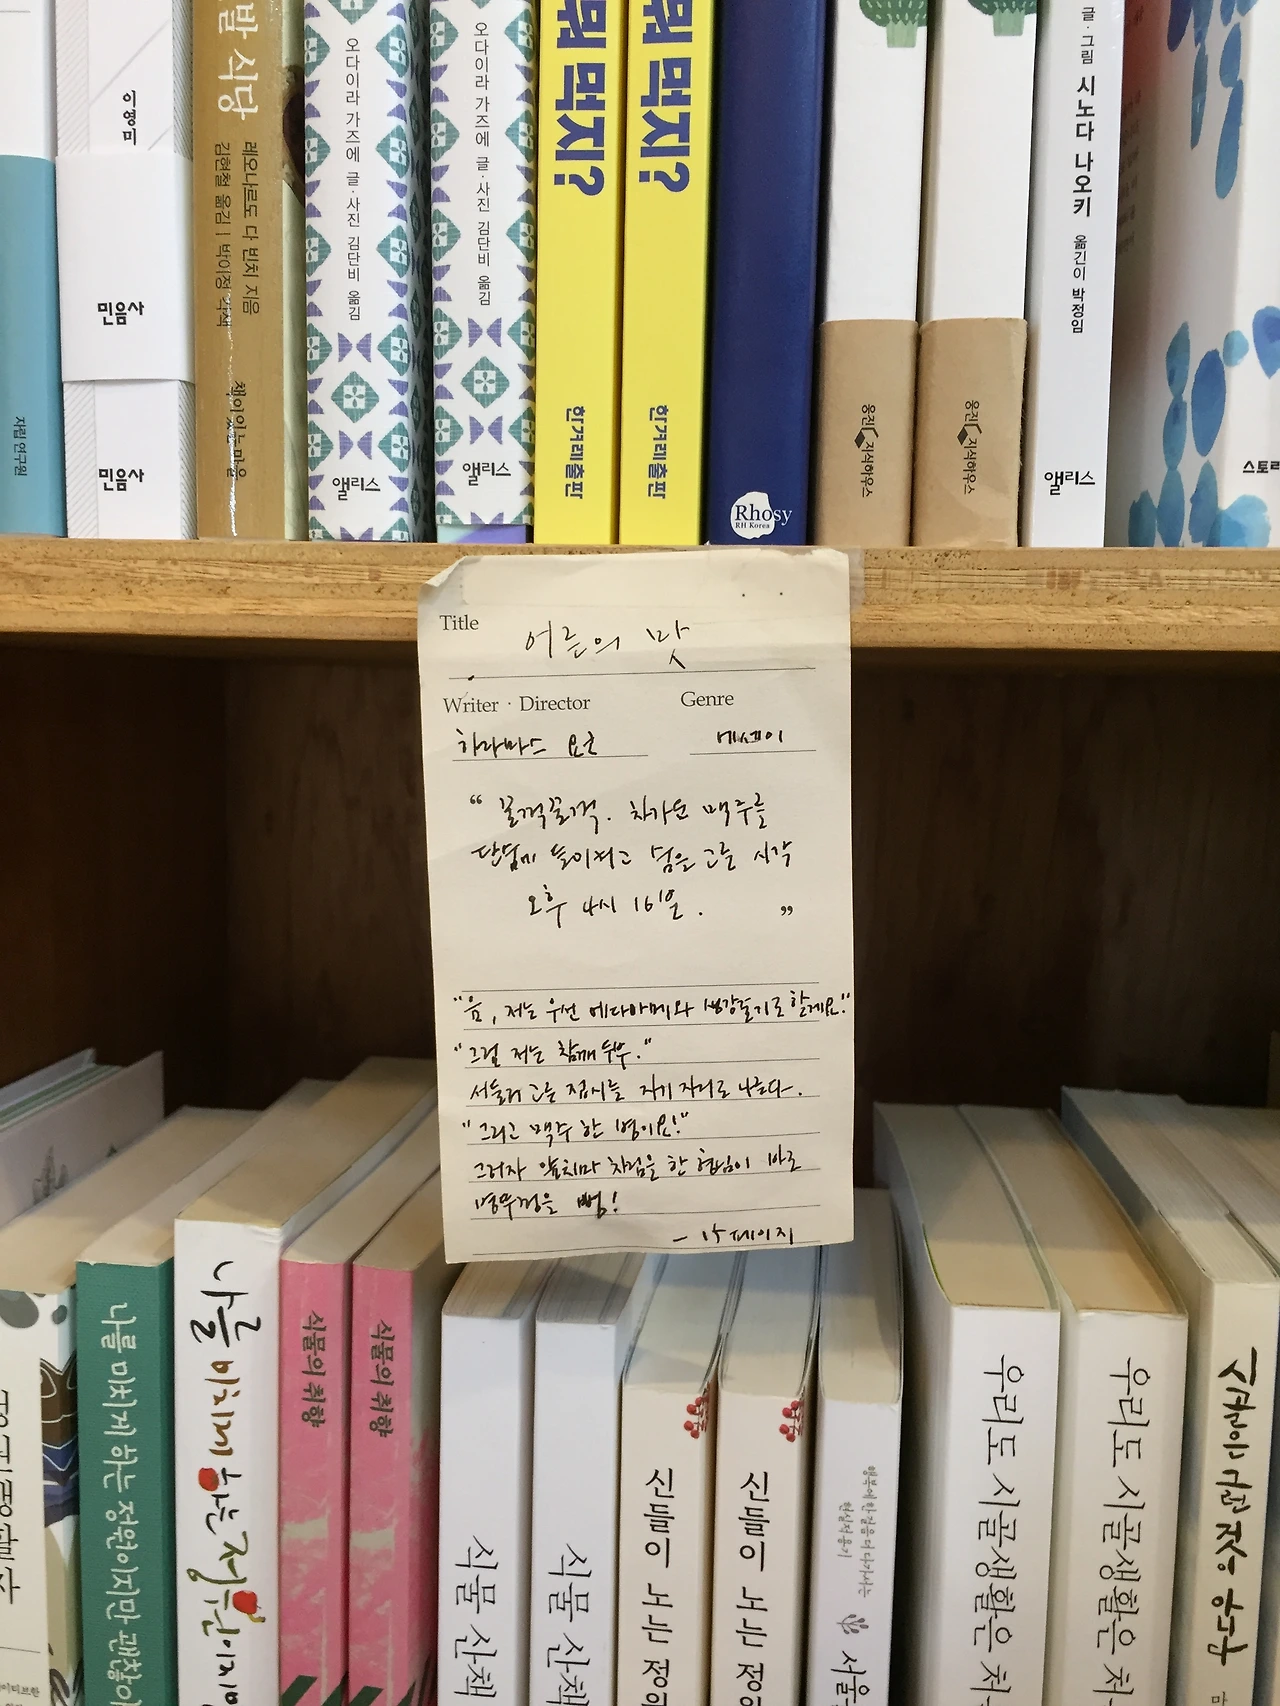 이영미
민음사
민음사
자립 연구원
밥 식당
레오나르도 다 빈치 지음
김현철 옮김 | 박이정
책이있는마을
오다이라 가즈에 글·사진 김단비 옮김
앨리스
오다이라 가즈에 글·사진 김단비 옮김
앨리스
뭐 먹지?
한겨레출판
뭐 먹지?
한겨레출판
Rhosy
RH Korea
웅진 지식하우스
웅진 지식하우스
글·그림 시노다 나오키 옮긴이 박정임
앨리스
스토리
Title
어른의 맛
Writer · Director
Genre
히라마쓰 요코
에세이
“ 꿀꺽꿀꺽. 차가운 맥주를
단숨에 들이켜고 숨을 고른 시각
오후 4시 16분. ”
"음, 저는 우선 에다마메와 생강줄기로 할게요!"
"그럼 저는 참깨 두부."
서둘러 고른 접시를 자기 자리로 나른다.
"그리고 맥주 한 병이요!"
그러자 앞치마 차림을 한 형님이 바로
병뚜껑을 뻥!
- 15 페이지
나를 미치게 하는 정원이지만 괜찮아
나를 미치게 하는 정원이지만
식물의 취향
식물의 취향
식물 산책
식물 산책
신들이 노는 정원
신들이 노는 정원
행복에 한 걸음 더 다가서는
서울
우리도 시골생활은 처
우리도 시골생활은 처
시골의 작은 숲